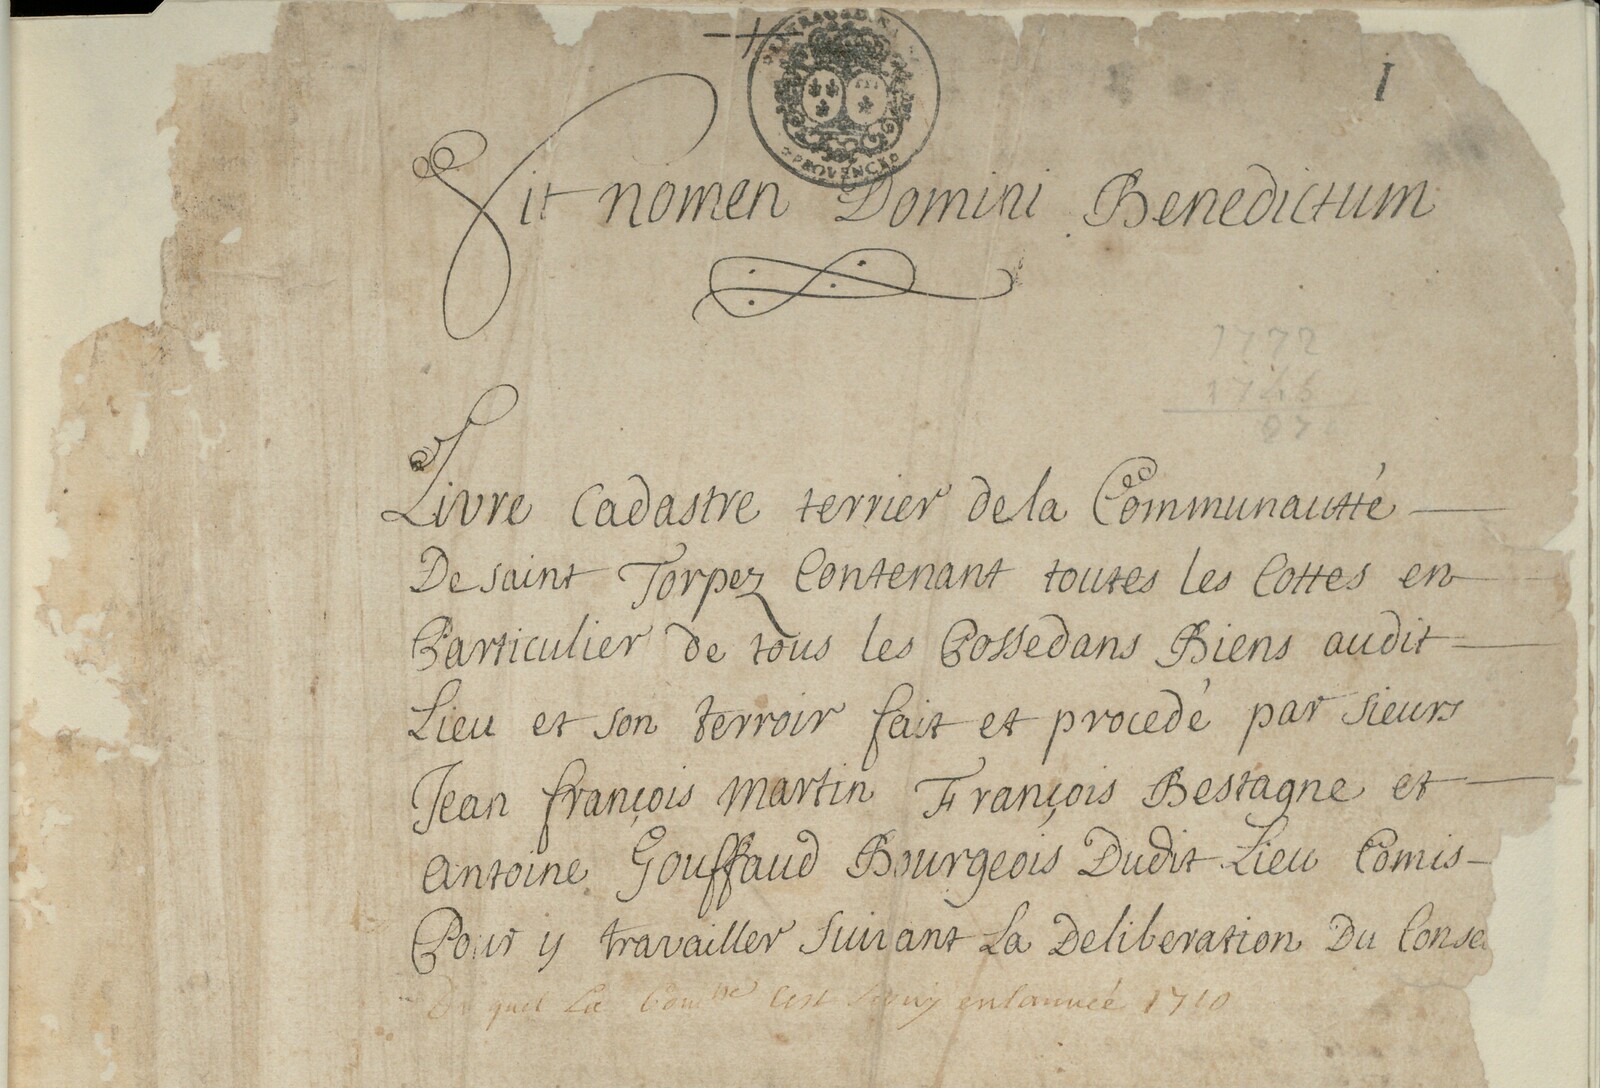 I
PROVENCE
Sit nomen Domini Benedictum
1772
1745
27
Livre Cadastre terrier de la Communautté
De saint Torpez Contenant toutes les Cottes en
Particulier de tous les Possedans Biens audit
Lieu et son terroir fait et procedé par sieurs
Jean françois martin François Bestagne et
Antoine Gouffaud Bourgeois Dudit Lieu Comis
Pour y travailler suivant La Deliberation Du Conse
Du quel La Comté C'est servy en lannéé 1710